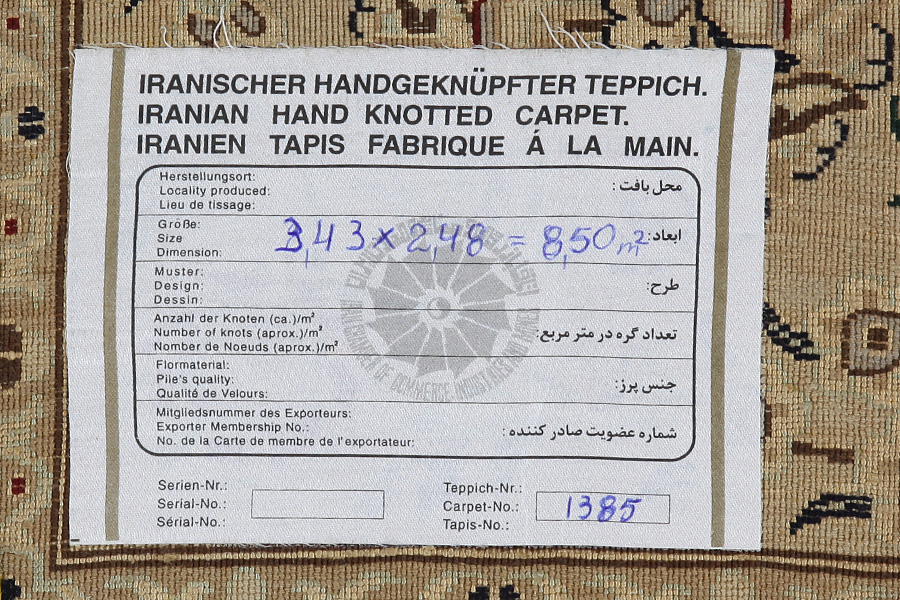 IRANISCHER HANDGEKNÜPFTER TEPPICH.
IRANIAN HAND KNOTTED CARPET.
IRANIEN TAPIS FABRIQUE Á LA MAIN.
Herstellungsort:
Locality produced:
Lieu de tissage:
محل بافت :
Größe:
Size
Dimension:
3,43 x 2,48 = 8,50 m²
ابعاد:
Muster:
Design:
Dessin:
طرح:
Anzahl der Knoten (ca.)/m²
Number of knots (aprox.)/m²
Nomber de Noeuds (aprox.)/m²
تعداد گره در متر مربع:
Flormaterial:
Pile's quality:
Qualité de Velours:
جنس پرز:
Mitgliedsnummer des Exporteurs:
Exporter Membership No.:
No. de la Carte de membre de l'exportateur:
شماره عضویت صادر کننده :
Serien-Nr.:
Serial-No.:
Sérial-No.:
Teppich-Nr.:
Carpet-No.:
Tapis-No.:
1385